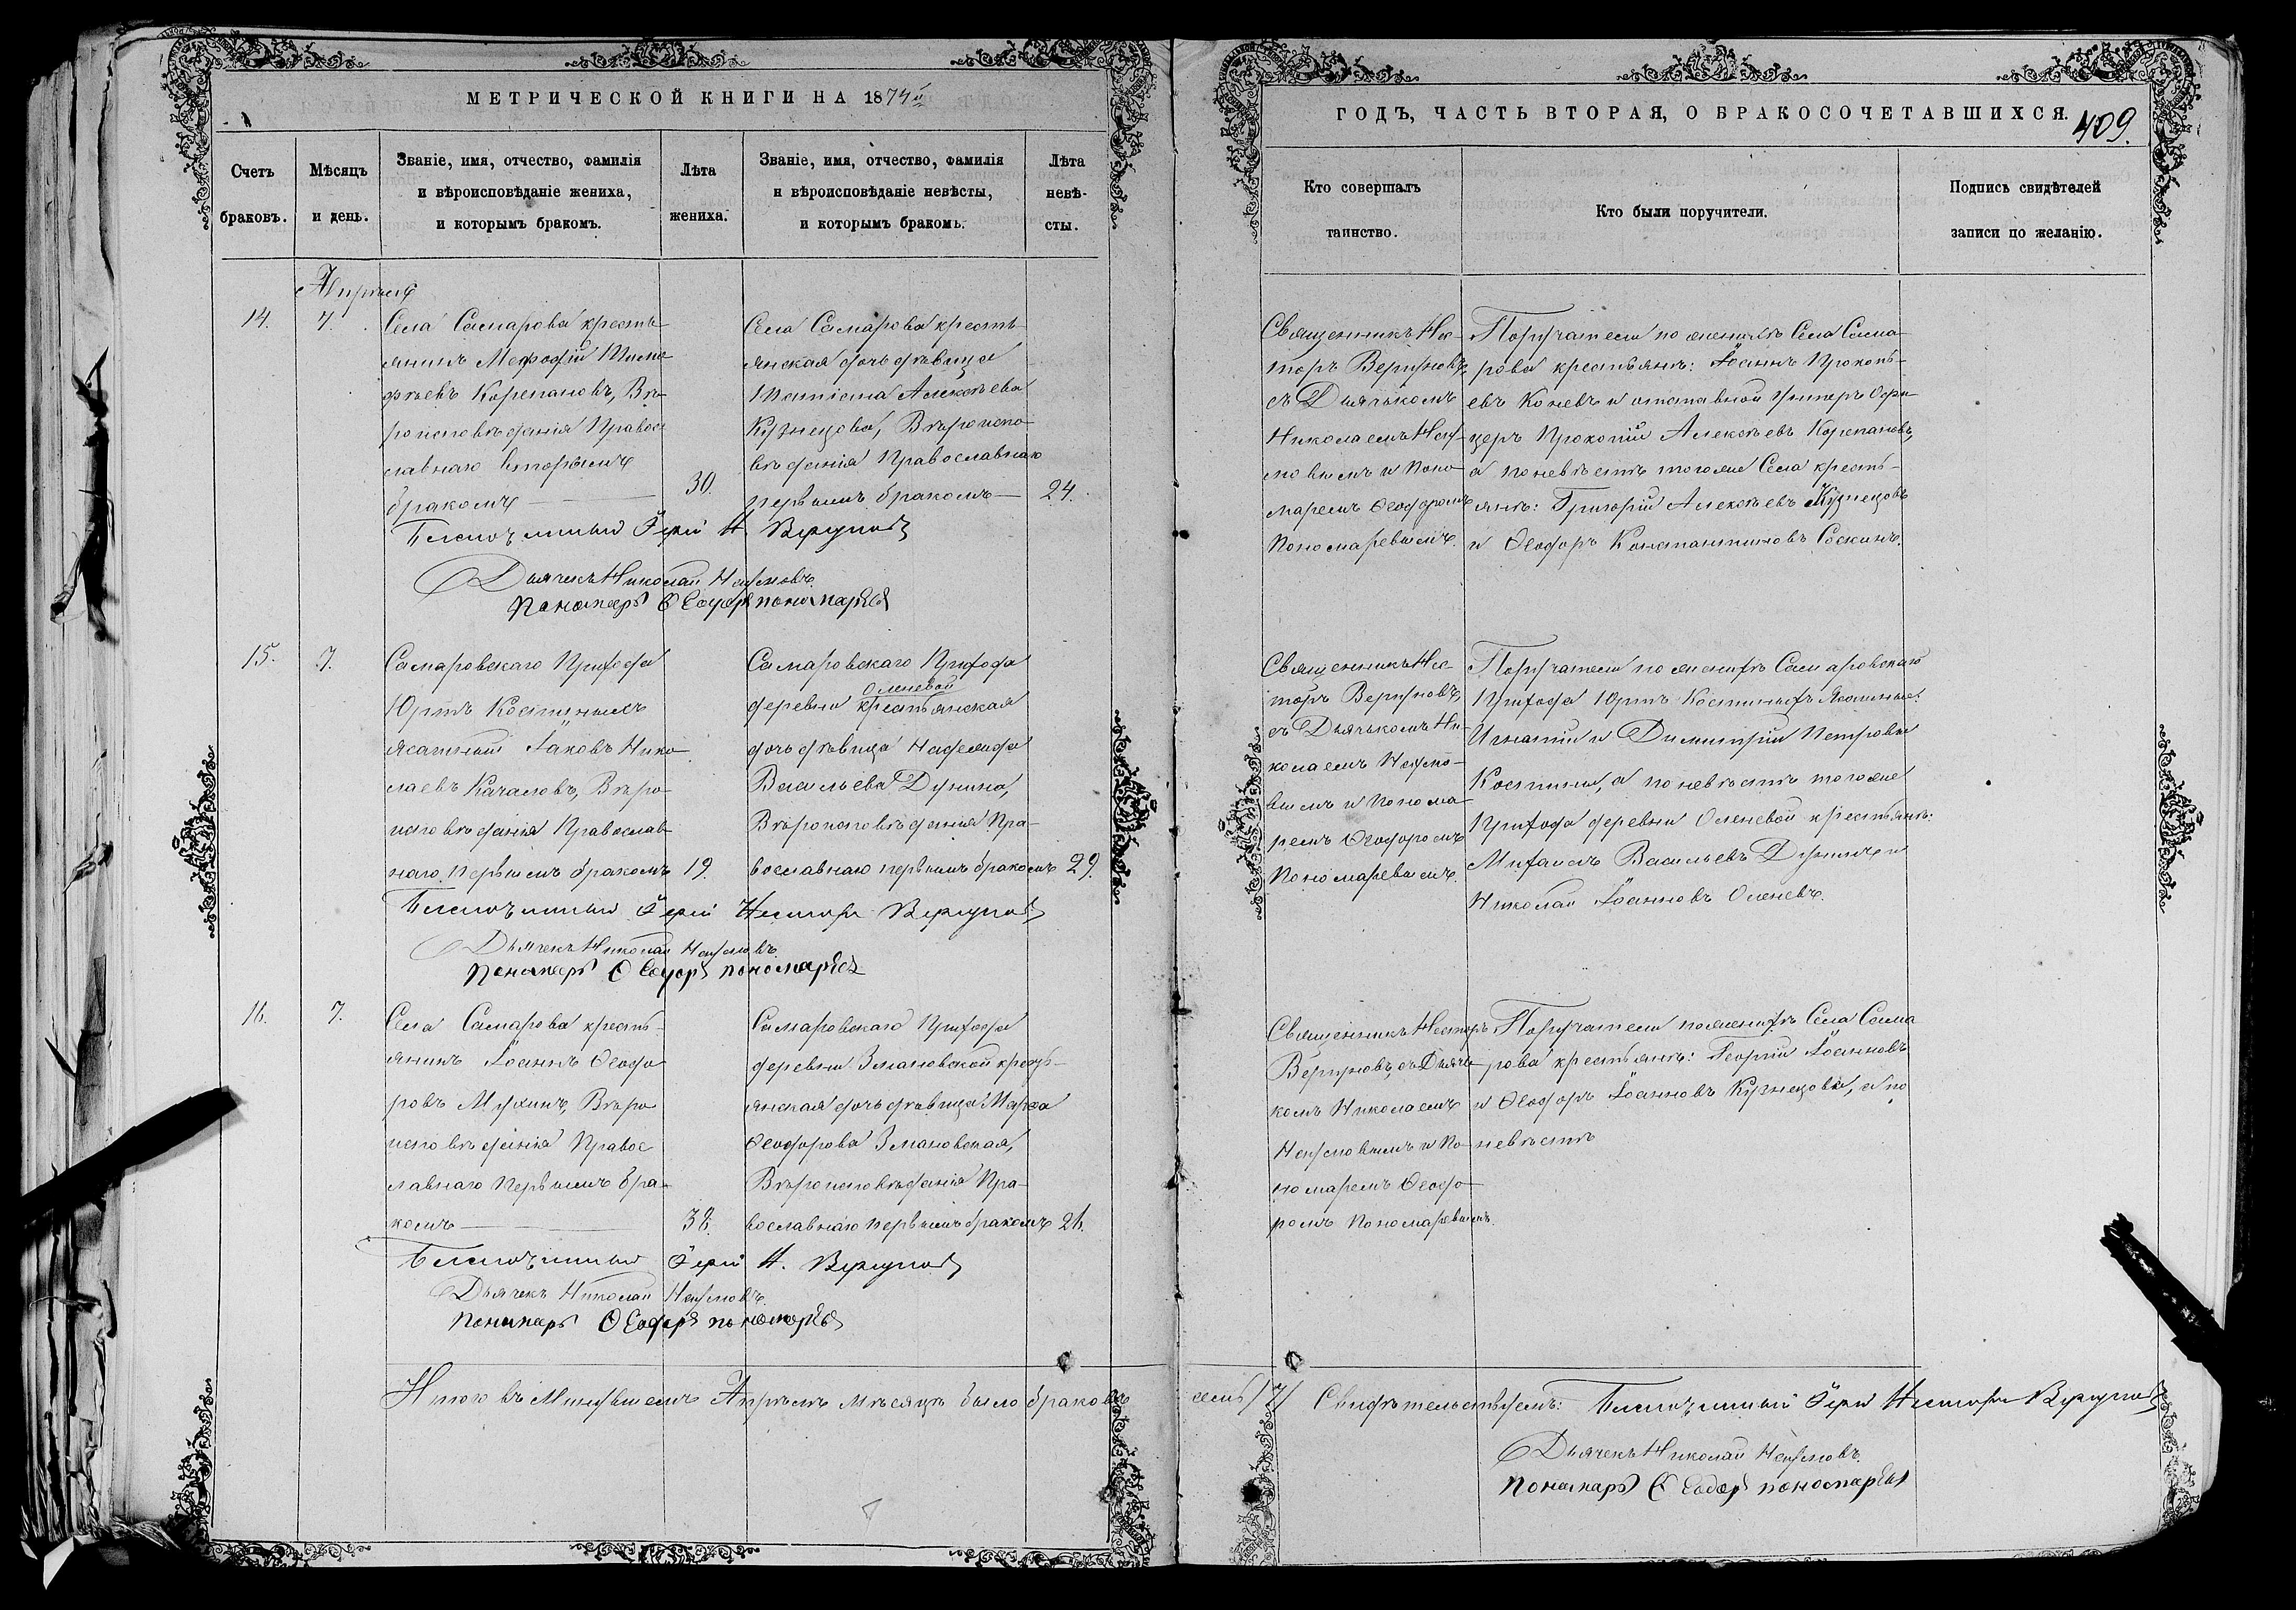 МЕТРИЧЕСКОЙ КНИГИ НА 1874й
ГОДЪ, ЧАСТЬ ВТОРАЯ, О БРАКОСОЧЕТАВШИХСЯ.
409.
Счетъ
браковъ.
Мѣсяцъ
и день.
Званіе, имя, отчество, фамилія
и вѣроисповѣданіе жениха,
и которымъ бракомъ.
Лѣта
жениха.
Званіе, имя, отчество, фамилія
и вѣроисповѣданіе невѣсты,
и которымъ бракомъ.
Лѣта
невѣ-
сты.
Кто совершалъ
таинство.
Кто были поручители.
Подпись свидѣтелей
записи по желанію.
Апрѣль
14.
7.
Села Самарова кресть-
янинъ Мефодій Тимо-
фѣевъ Корепановъ, Вѣ-
роисповѣданія Правос-
лавнаго вторымъ
бракомъ
30.
Села Самарова кресть-
янская дочь дѣвица
Татіана Алексѣева
Кузнецова, Вѣроиспо-
вѣданія Православнаго
первымъ бракомъ
24.
Священникъ Нес-
торъ Вергуновъ,
съ Дьячькомъ
Николаемъ Нау-
мовымъ и Поно-
маремъ Ѳеодоромъ
Пономаревымъ.
Поручатели по женихѣ Села Сама-
рова крестьянѣ: Іоаннъ Прокопь-
евъ Коневъ и отставной Унтеръ Офи-
церъ Прокопій Алексѣевъ Корепановъ,
а по невѣстѣ тогоже Села кресть-
янѣ: Григорій Алексѣевъ Кузнецовъ
и Ѳеодоръ Константиновъ Соскинъ.
Благочинный Іерей Н. Вергуновъ
Дьячекъ Николай Наумовъ.
Пономарь Ѳеодоръ Пономаревъ
15.
7.
Самаровскаго Прихода
Юртъ Костиныхъ
ясашный Іаковъ Нико-
лаевъ Качаловъ, Вѣро-
исповѣданія Православ-
наго первымъ бракомъ
19.
Самаровскаго Прихода
деревни Оленевой крестьянская
дочь дѣвица Надежда
Васильева Дунина,
Вѣроисповѣданія Пра-
вославнаго первымъ бракомъ
29.
Священникъ Нес-
торъ Вергуновъ,
съ Дьячькомъ Ни-
колаемъ Наумо-
вымъ и Понома-
ремъ Ѳеодоромъ
Пономаревымъ.
Поручатели по женихѣ Самаровскаго
Прихода Юртъ Костиныхъ Ясашные:
Игнатій и Димитрій Петровы
Костины, а по невѣстѣ тогоже
Прихода деревни Оленевой крестьянѣ:
Михаилъ Васильевъ Дунинъ и
Николай Іоанновъ Оленевъ.
Благочинный Іерей Несторъ Вергуновъ
Дьячекъ Николай Наумовъ.
Пономарь Ѳеодоръ Пономаревъ
16.
7.
Села Самарова кресть-
янинъ Іоаннъ Ѳеодо-
ровъ Мухинъ, Вѣро-
исповѣданія Правос-
лавнаго первымъ бра-
комъ
38.
Самаровскаго Прихода
деревни Змановской кресть-
янская дочь дѣвица Марѳа
Ѳеодорова Змановская,
Вѣроисповѣданія Пра-
вославнаго первымъ бракомъ
26.
Священникъ Несторъ
Вергуновъ, съ Дьячь-
комъ Николаемъ
Наумовымъ и По-
номаремъ Ѳеодо-
ромъ Пономаревымъ.
Поручатели по женихѣ Села Сама-
рова крестьянѣ: Георгій Іоанновъ
и Ѳеодоръ Іоанновъ Кузнецовы, а по
невѣстѣ
Благочинный Іерей Н. Вергуновъ
Дьячекъ Николай Наумовъ.
Пономарь Ѳеодоръ Пономаревъ
Итого въ Минувшемъ Апрѣлѣ мѣсяцѣ было браковъ семь /7/ Свидѣтельствуемъ: Благочинный Іерей Несторъ Вергуновъ
Дьячекъ Николай Наумовъ.
Пономарь Ѳеодоръ Пономаревъ